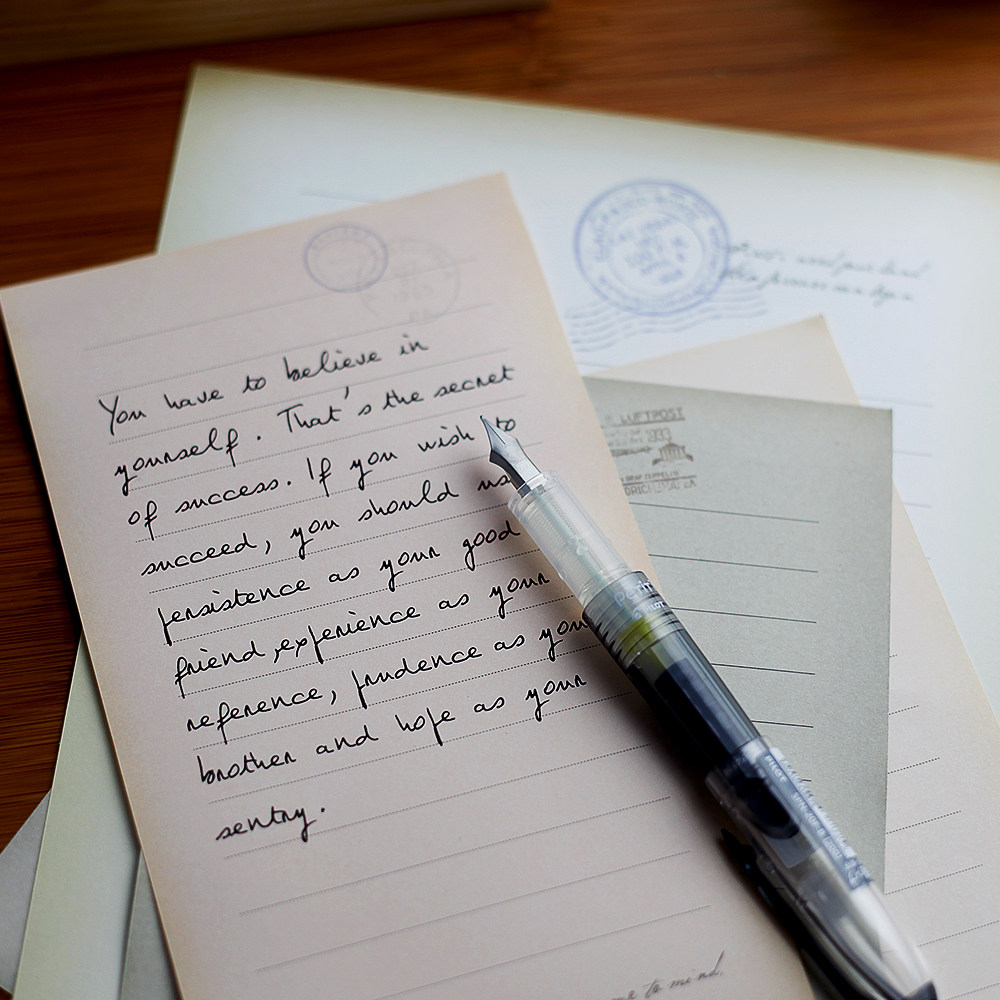 You have to believe in
yourself. That's the secret
of success. If you wish to
succeed, you should us
persistence as your good
friend, experience as your
reference, prudence as your
brother and hope as your
sentry.
to mind.
LUFTPOST
1933
PILOT